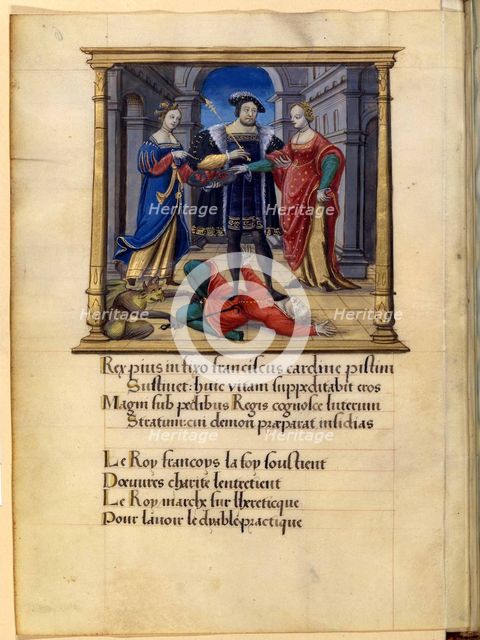 Heritage Heritage
Heritage Heritage
Rex pius in fixo franciscus cardine pistim
Sustinet: huic vitam suppeditabit eros
Magni sub pedibus Regis cognosce luterum
Stratum: cui demon præparat insidias
Heritage
Le Roy francoys la foy soustient
Dœuvres charite lentretient
Le Roy marche sur lhereticque
Pour lavoir le dyable practique